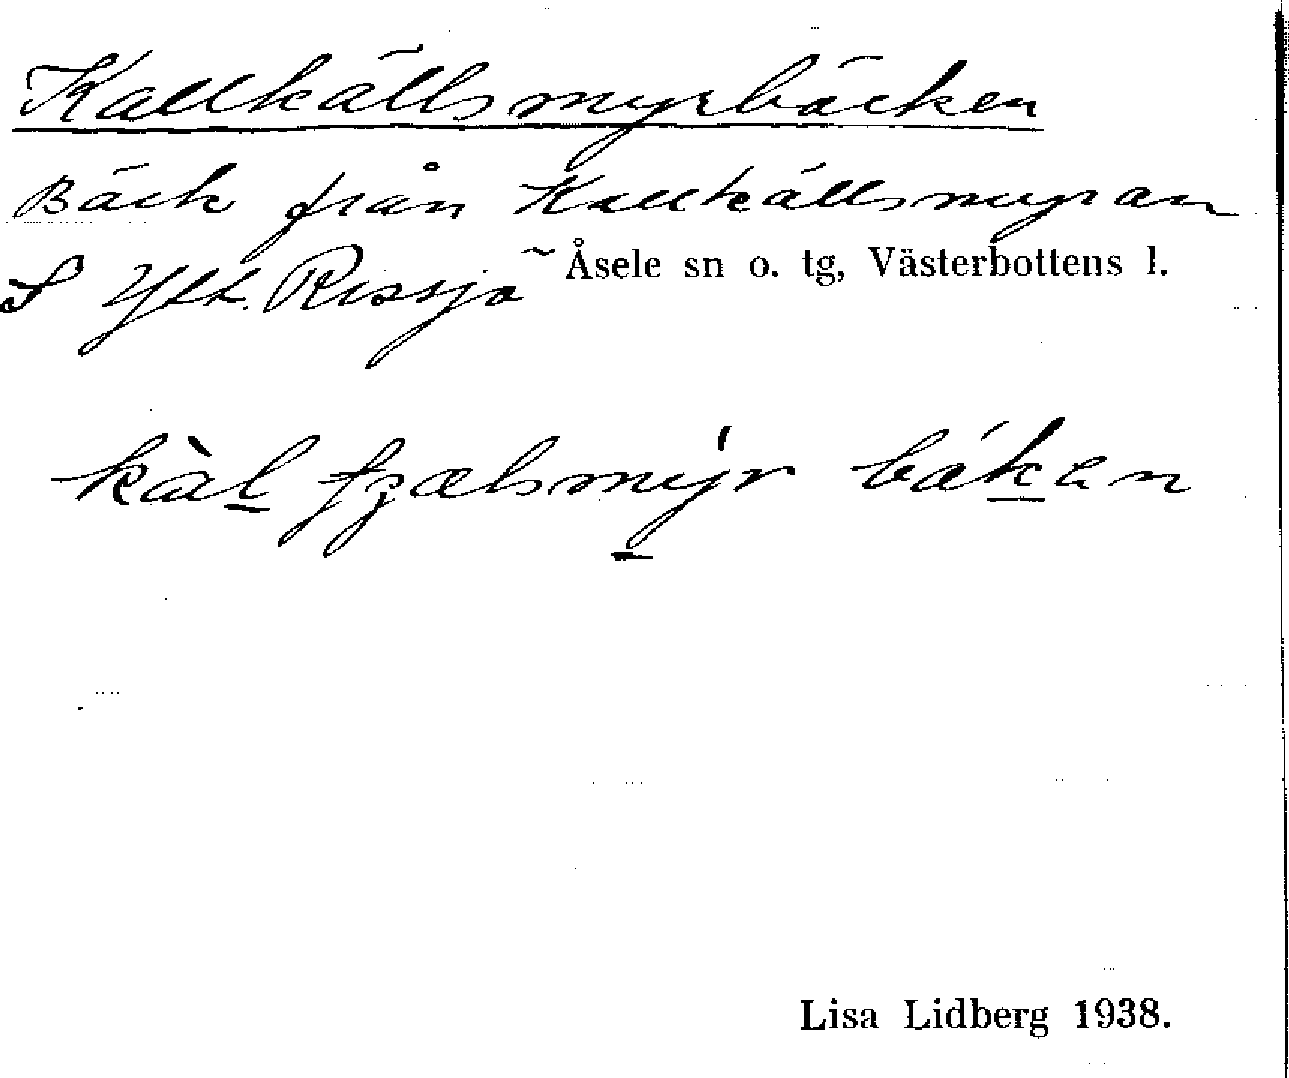 Kallkällsmyrbäcken
Bäck från Kallkällsmyran
S Ytt. Rissjö Åsele sn o. tg, Västerbottens l.
kàl fʒælsmýr bákan
Lisa Lidberg 1938.